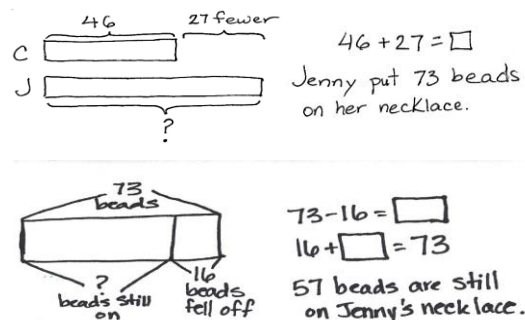 46
27 fewer
C
J
?
46 + 27 = □
Jenny put 73 beads
on her necklace.
73
beads
?
beads still
on
16
beads
fell off
73-16 = □
16 + □ = 73
57 beads are still
on Jenny's necklace.